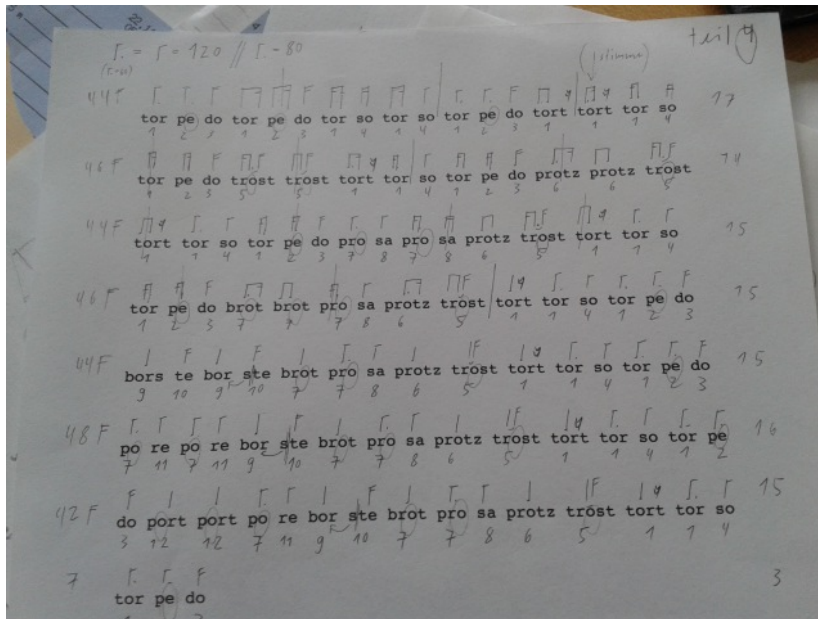 teil 4
= 120 // - 80
44F
tor pe do tor pe do tor so tor so tor pe do tort tort tor so 17
1 2 3 1 2 3 1 4 1 4 1 2 3 1 1 1 4
46F
tor pe do tróst tróst tort tor so tor pe do protz protz tróst 14
1 2 3 5 5 1 1 4 1 2 3 6 6 5
44F
tort tor so tor pe do pro sa pro sa protz tróst tort tor so 15
1 1 4 1 2 3 7 8 7 8 6 5 1 1 4
46F
tor pe do brot brot pro sa protz tróst tort tor so tor pe do 15
1 2 3 7 7 7 8 6 5 1 1 4 1 2 3
44F
bors te bor ste brot pro sa protz tróst tort tor so tor pe do 15
9 10 9 10 7 7 8 6 5 1 1 4 1 2 3
48F
po re po re bor ste brot pro sa protz tróst tort tor so tor pe 16
7 11 7 11 9 10 7 7 8 6 5 1 1 4 1 2
42F
do port port po re bor ste brot pro sa protz tróst tort tor so 15
3 12 12 7 11 9 10 7 7 8 6 5 1 1 4
7
tor pe do 3